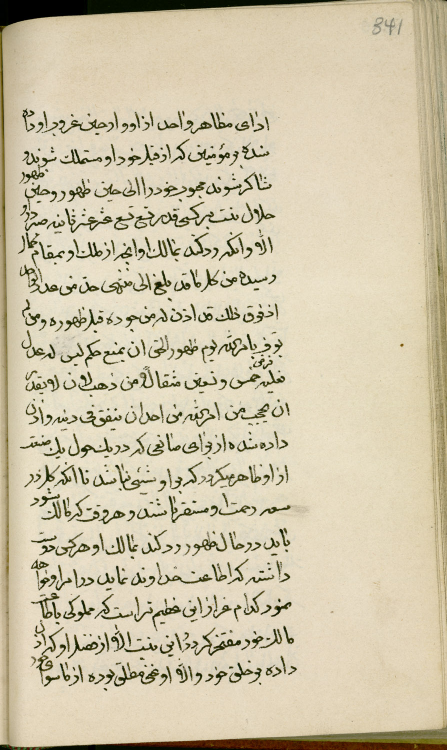 341
ادای مظاهر واحد از او و از حین غروب او داده
شده بر مؤمنین که از قبل خود او متملک شوند و
شاکر شوند محبوب خود را الی حین ظهور و حین ظهور
حلال نیست بر کسی قدر تسع تسع عشر عشر ثانیه صبر دار
الا و آنکه رد کند بمالک او
رسیده من کل ما قد بلغ الی منتهی حد من عدل
اذ فوق ذلک قد اذن له من جوده قبل ظهوره و من لم
یوف یا مر الله یوم ظهور الحق ان یمنع حکم
فعلیه خمس و تسعین مثقالا من ذهب
ان یحب من امر الله من احد ان ینفق فی دینه واذن
داده شده از برای صانعی که در یک حول یک صنعت
از او ظاهر میگردد که بر او شیئی نباشد تا آنکه کل در
سعه رحمت او مستقر باشند و هر وقت که مالک شود
باید در حال ظهور رد کند بمالک او هر کس دوست
داشته که اطاعت خداوند نماید در امر او
نمود کدام عز از این عظیم تر است که مملوکی باطاعت
مالک خود مفتخر گردد و این نیست الا از فضل او که اذن
داده بر خلق خود والا او غنی مطلق بوده از ما سوای خود